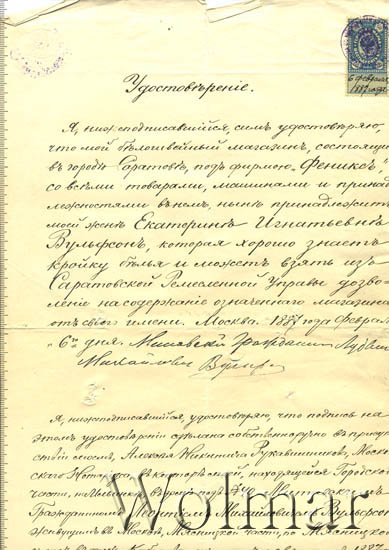 6 февраля
1887 года
Удостовѣреніе.
Я, нижеподписавшійся, симъ удостовѣряю,
что мой бѣлошвейный магазинъ, состоящій
въ городѣ Саратовѣ, подъ фирмою „Фениксъ“
со всѣми товарами, машинами и принад
лежностями въ немъ, нынѣ принадлежитъ
моей женѣ Екатеринѣ Игнатьевнѣ
Вульфсонъ, которая хорошо знаетъ
кройку бѣлья и можетъ взять изъ
Саратовской Ремесленной Управы дозво
леніе на содержаніе означеннаго магазина
отъ своего имени. Москва. 1887 года Февраля
„6го дня.
Михайловъ
Я, нижеподписавшійся, удостовѣряю, что подпись на
этомъ удостовѣреніи сдѣлана собственноручно въ присут
ствіи моемъ, Алексѣя Никитича Рукавишникова, Москов
скаго Нотаріуса, въ конторѣ моей, находящейся Городской
части,
Гражданиномъ Михайловичемъ Вульфсонъ
живущимъ въ Москвѣ, Мясницкой части, по Мясницкой
Wolmar